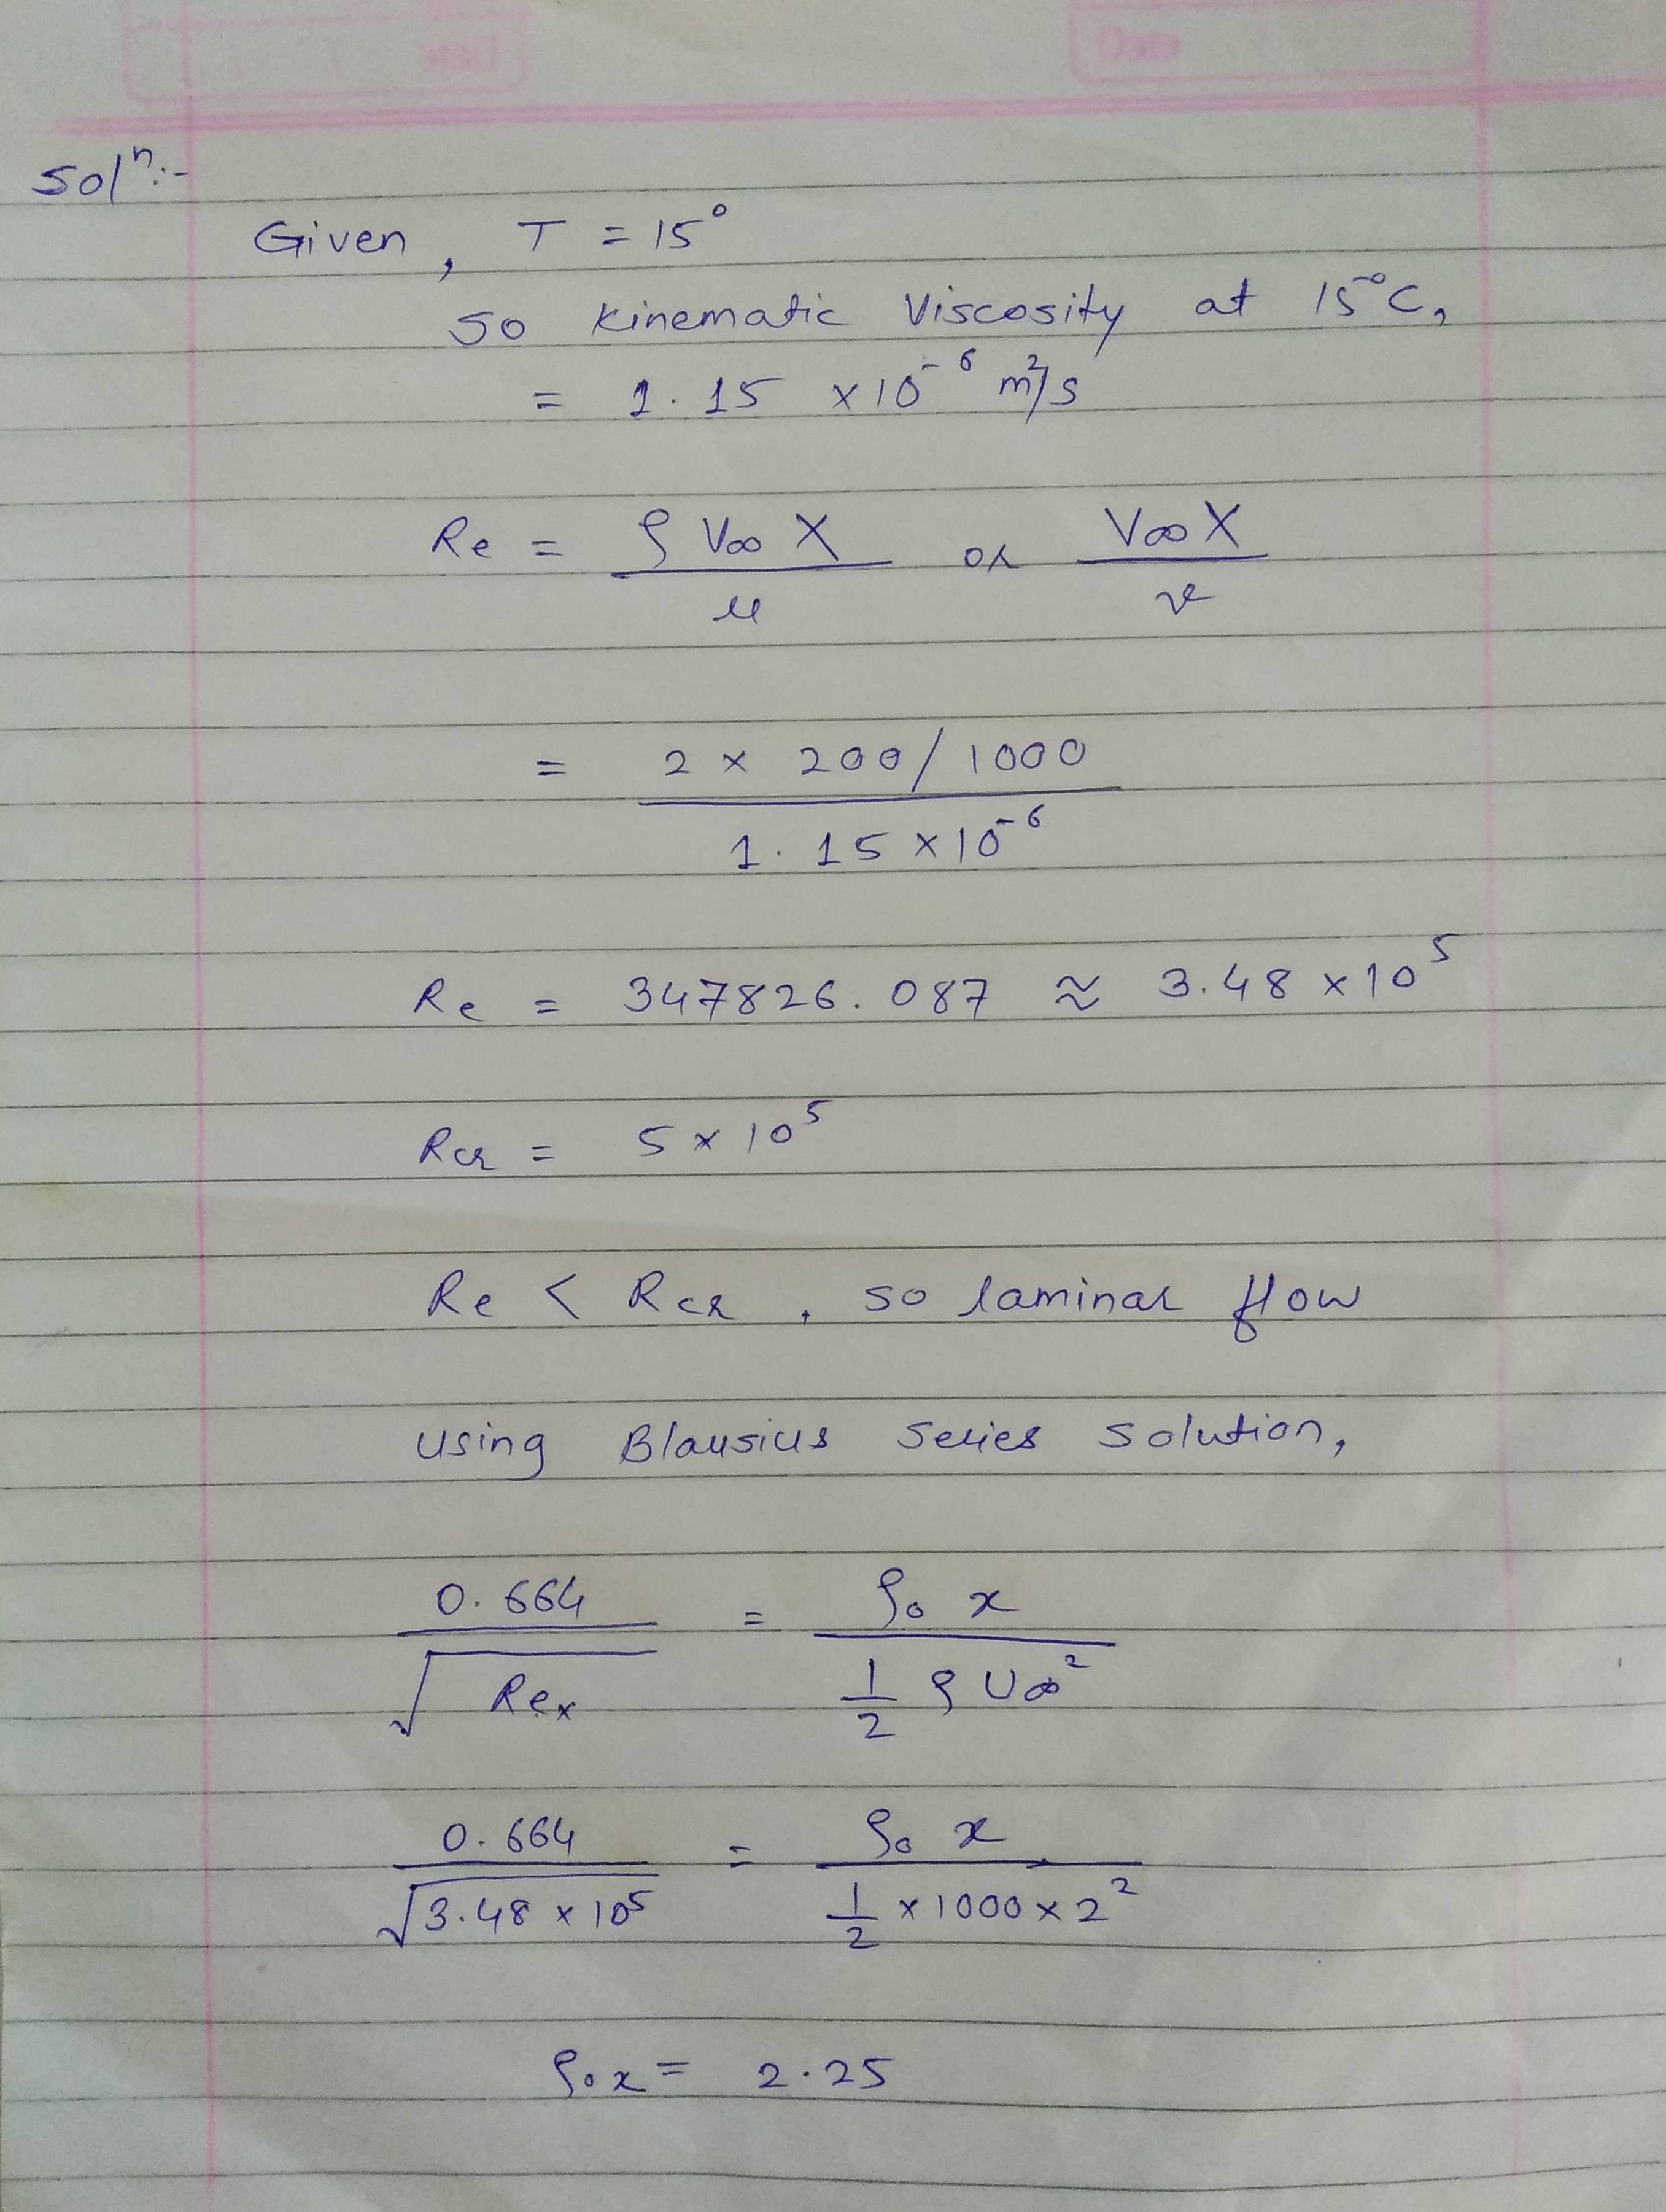 Solⁿ:-
Given, T = 15°
So Kinematic Viscosity at 15°C,
= 1.15 × 10⁻⁶ m²/s
Re = ρ V∞ X / μ or V∞ X / ν
= 2 × 200/1000 / 1.15 × 10⁻⁶
Re = 347826.087 ≈ 3.48 × 10⁵
Rcr = 5 × 10⁵
Re < Rcr, so laminar flow
Using Blausius Series Solution,
0.664 / √Rex = ρ₀ x / ½ ρ U∞²
0.664 / √3.48 × 10⁵ = ρ₀ x / ½ × 1000 × 2²
ρ₀ x = 2.25